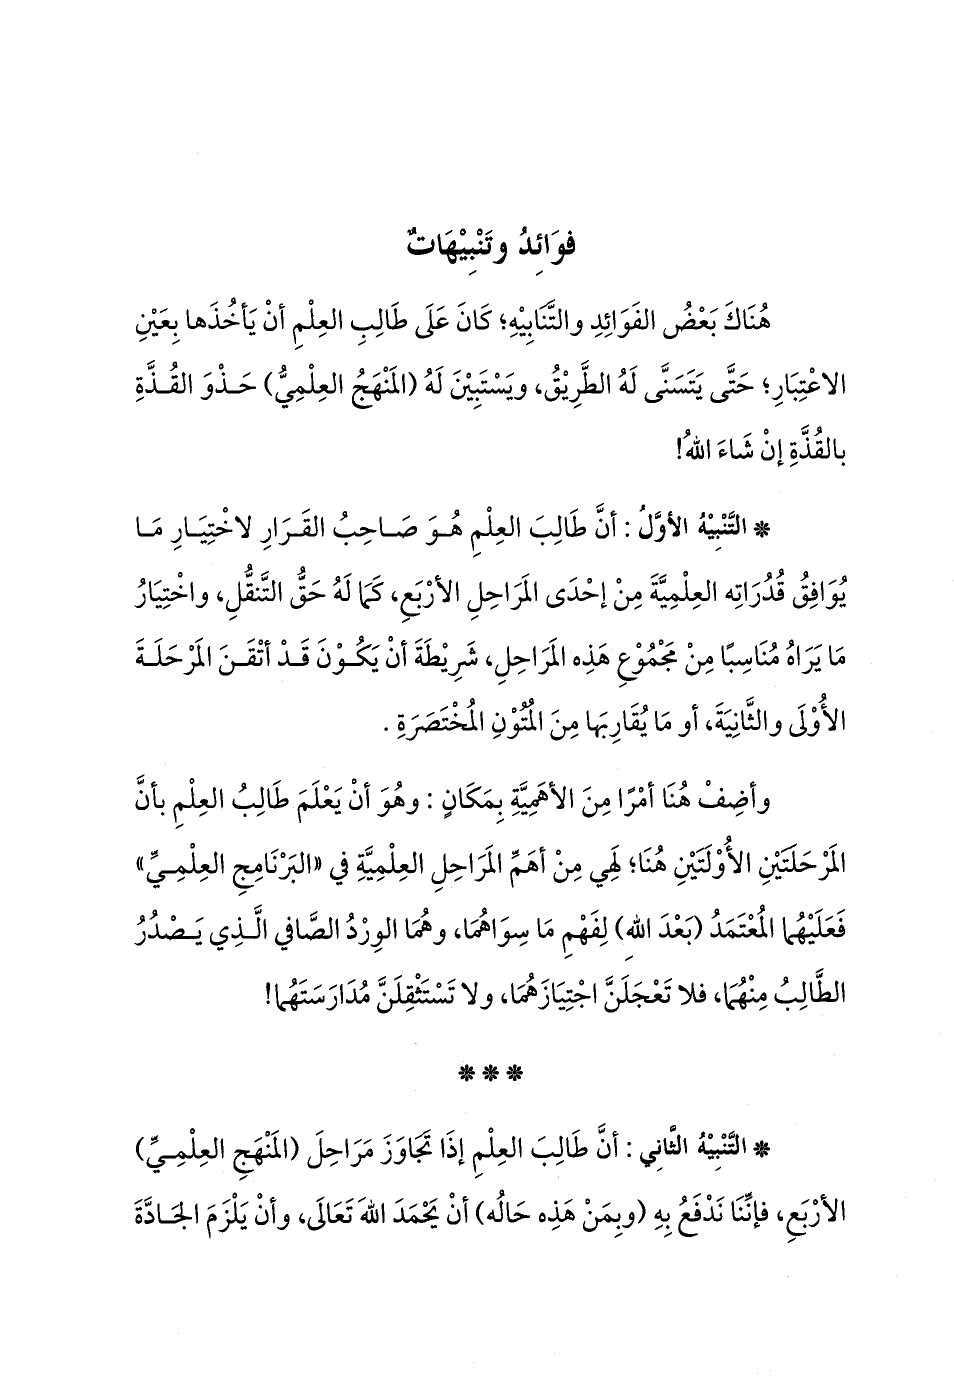 فوَائِدُ وتَنْبِيْهَاتٌ
هُنَاكَ بَعْضُ الفَوَائِدِ والتَّنَابِيْهِ؛ كَانَ عَلَى طَالِبِ العِلْمِ أنْ يَأخُذَها بِعَيْنِ
الاعْتِبَارِ؛ حَتَّى يَتَسَنَّى لَهُ الطَّرِيْقُ، ويَسْتَبِيْنَ لَهُ (المَنْهَجُ العِلْمِيُّ) حَذْوَ القُذَّةِ
بالقُذَّةِ إنْ شَاءَ اللهُ!
* التَّنْبِيْهُ الأوَّلُ : أنَّ طَالِبَ العِلْمِ هُوَ صَاحِبُ القَرَارِ لاخْتِيَارِ مَا
يُوَافِقُ قُدُرَاتِه العِلْمِيَّةَ مِنْ إحْدَى المَرَاحِلِ الأرْبَعِ، كَمَا لَهُ حَقُّ التَّنقُّلِ، واخْتِيَارُ
مَا يَرَاهُ مُنَاسِبًا مِنْ مَجْمُوْعِ هَذِه المَرَاحِلِ، شَرِيْطَةَ أنْ يَكُوْنَ قَدْ أتْقَنَ المَرْحَلَةَ
الأُوْلَى والثَّانِيَةَ، أو مَا يُقَارِبَها مِنَ المُتُوْنِ المُخْتَصَرَةِ .
وأضِفْ هُنَا أمْرًا مِنَ الأهَمِيَّةِ بِمَكَانٍ : وهُوَ أنْ يَعْلَمَ طَالِبُ العِلْمِ بأنَّ
المَرْحَلَتَيْنِ الأُوْلَتَيْنِ هُنَا؛ لَهِي مِنْ أهَمِّ المَرَاحِلِ العِلْمِيَّةِ في «البَرْنَامِجِ العِلْمِيِّ»
فَعَلَيْهُما المُعْتَمَدُ (بَعْدَ اللهِ) لِفَهْمِ مَا سِوَاهُمَا، وهُمَا الوِرْدُ الصَّافي الَّذِي يَصْدُرُ
الطَّالِبُ مِنْهُمَا، فلا تَعْجَلَنَّ اجْتِيَازَهُمَا، ولا تَسْتَثْقِلَنَّ مُدَارَسَتَهُما!
* * *
* التَّنْبِيْهُ الثَّانِي : أنَّ طَالِبَ العِلْمِ إذَا تَجَاوَزَ مَرَاحِلَ (المَنْهَجِ العِلْمِيِّ)
الأرْبَعِ، فإنَّنَا نَدْفَعُ بِهِ (وبِمَنْ هَذِه حَالُه) أنْ يَحْمَدَ اللهَ تَعَالَى، وأنْ يَلْزَمَ الجَادَّةَ